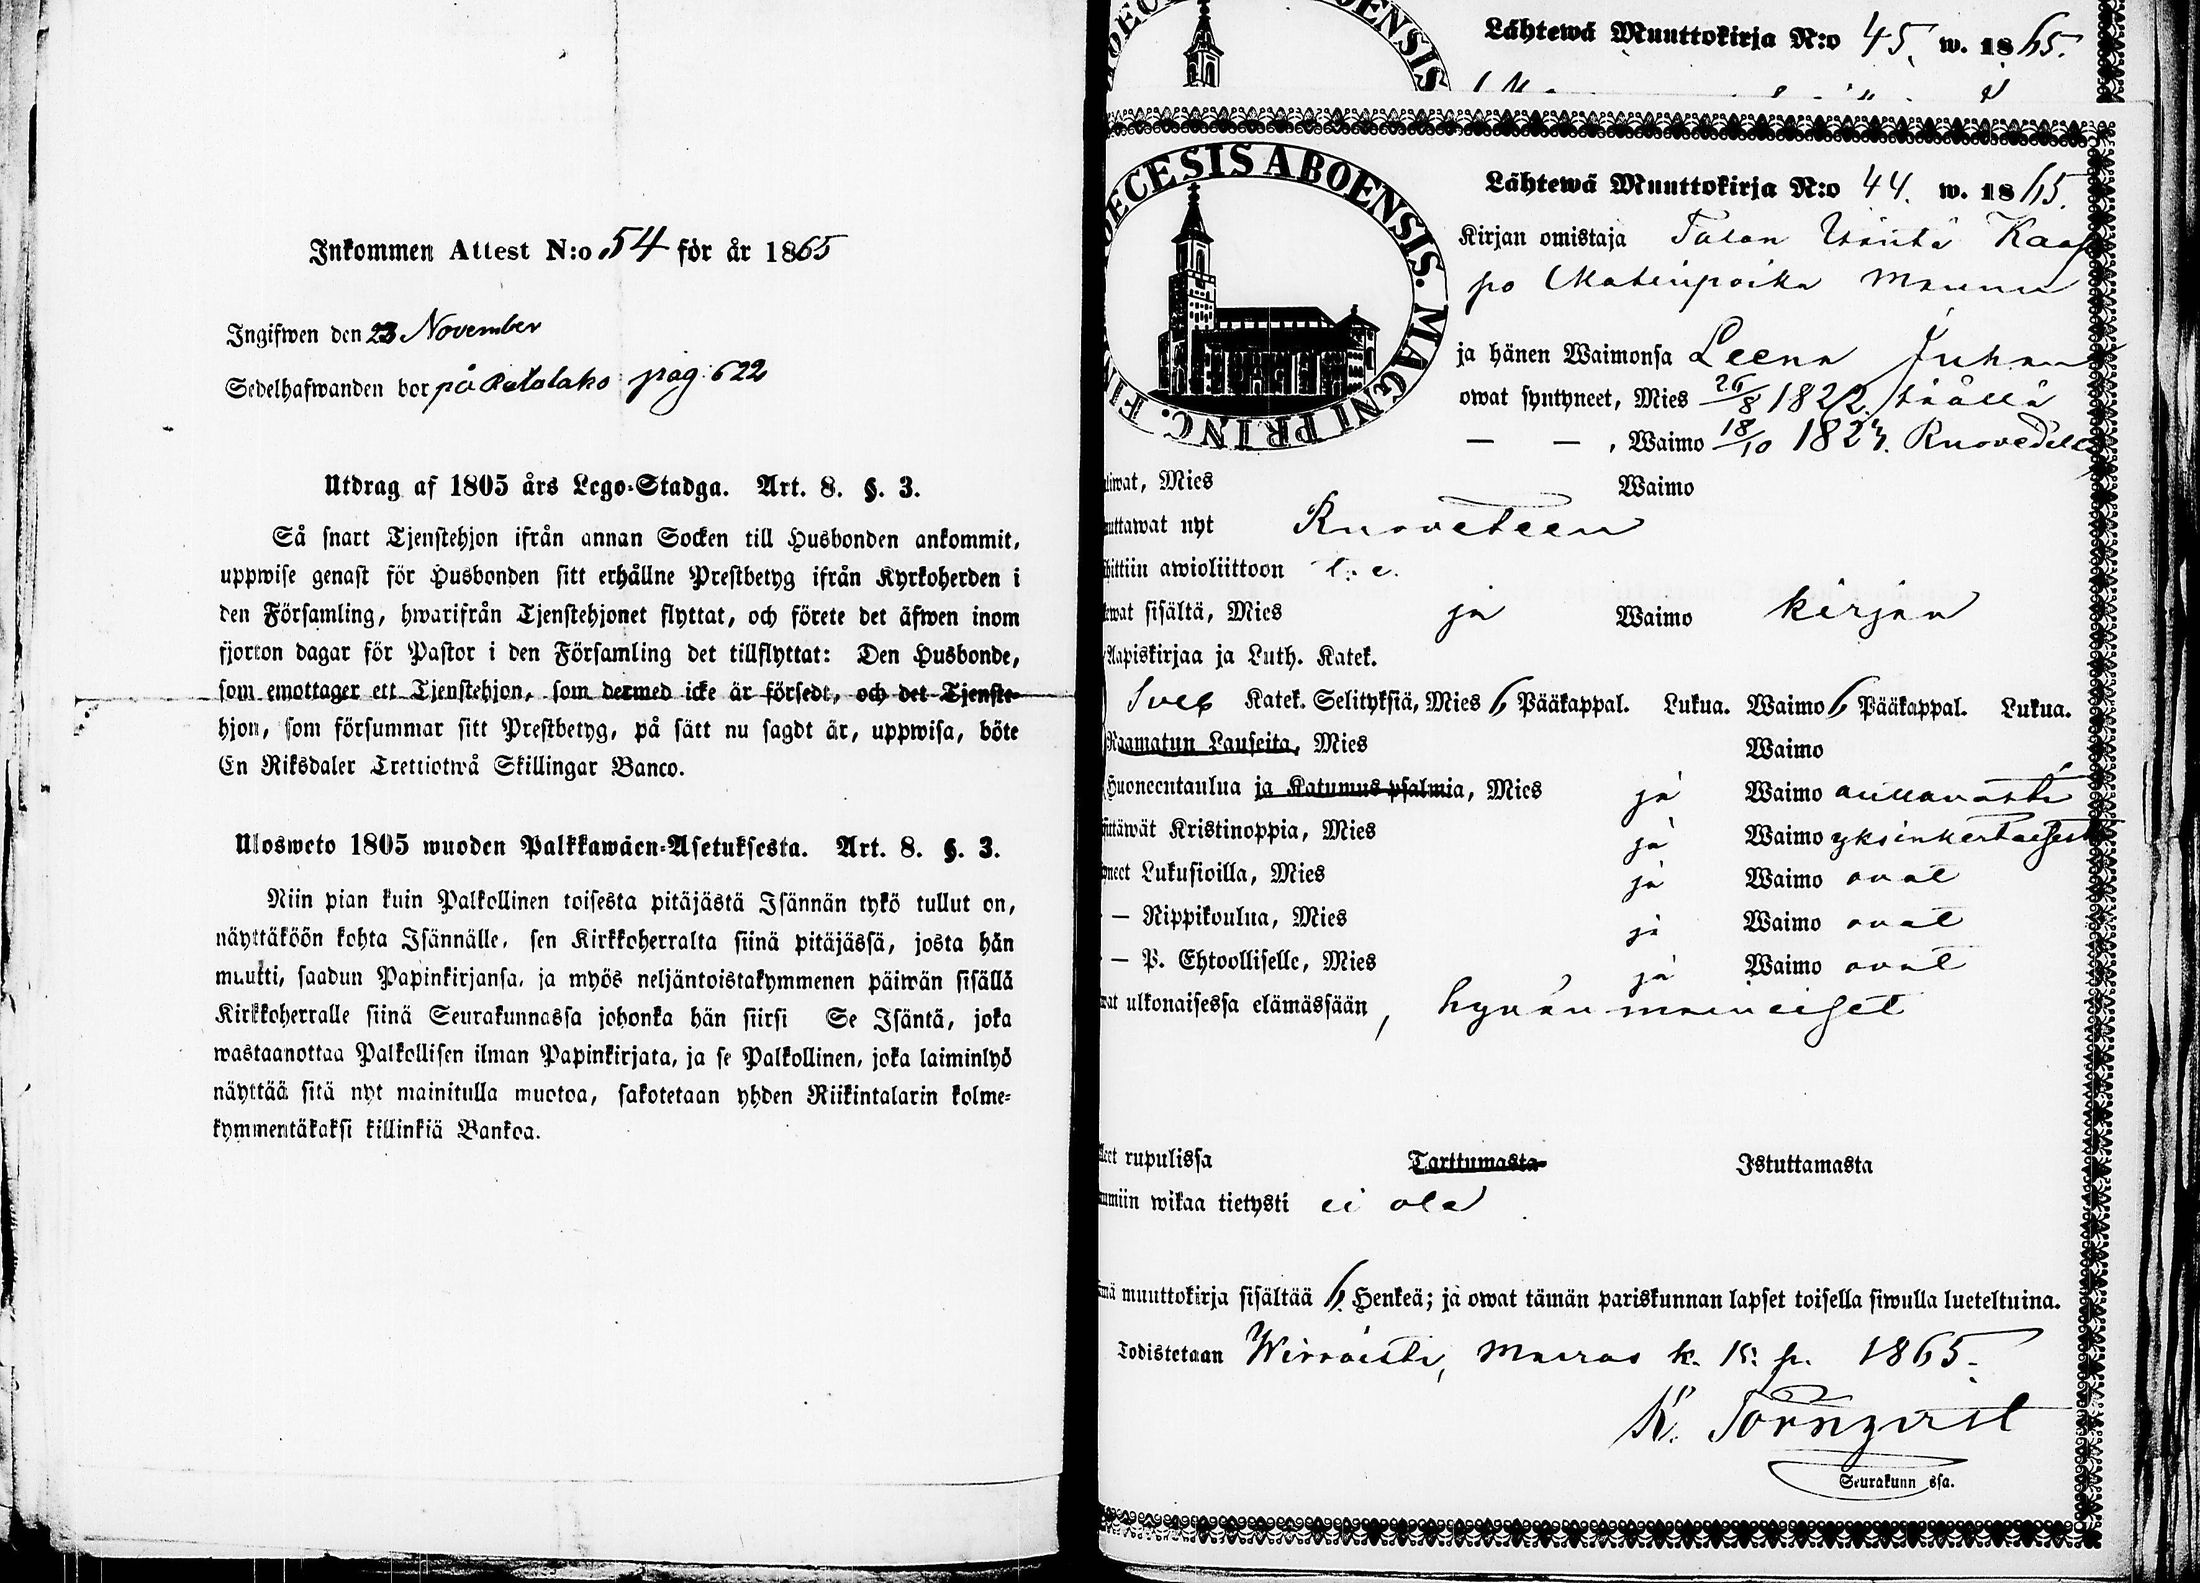 Inkommen Attest N:o 54 för år 1865
Ingifwen den 23 November
Sedelhafwanden bor på pag. 622
Utdrag af 1805 års Lego-Stadga. Art. 8. §. 3.
Så snart Tjenstehjon ifrån annan Socken till Husbonden ankommit,
uppwise genast för Husbonden sitt erhållne Prestbetyg ifrån Kyrkoherden i
den Församling, hwarifrån Tjenstehjonet flyttat, och förete det äfwen inom
fjorton dagar för Pastor i den Församling det tillflyttat: Den Husbonde,
som emottager ett Tjenstehjon, som dermed icke är försedt, och det Tjenste-
hjon, som försummar sitt Prestbetyg, på sätt nu sagdt är, uppwisa, böte
En Riksdaler Trettiotwå Skillingar Banco.
Ulosweto 1805 wuoden Palkkawäen-Asetuksesta. Art. 8. §. 3.
Niin pian kuin Palkollinen toisesta pitäjästä Isännän tykö tullut on,
näyttäköön kohta Isännälle, sen Kirkkoherralta siinä pitäjässä, josta hän
muutti, saadun Papinkirjansa, ja myös neljäntoistakymmenen päiwän sisällä
Kirkkoherralle siinä Seurakunnassa johonka hän siirsi Se Isäntä, joka
wastaanottaa Palkollisen ilman Papinkirjata, ja se Palkollinen, joka laiminlyö
näyttää sitä nyt mainitulla muotoa, sakotetaan yhden Riikintalarin kolme-
kymmentäkaksi killinkiä Bankoa.
Lähtewä Muuttokirja N:o 45. w. 1865.
DECESIS ABOENSIS. MAGNI PRINC. FIN
Lähtewä Muuttokirja N:o 44. w. 1865.
Kirjan omistaja Talon Isäntä Kaap
po Matinpoika Mannu
ja hänen Waimonsa Leena Juhan
owat syntyneet, Mies 26/8 1822. täällä
— — , Waimo 18/10 1823. Ruovedellä
liwat, Mies Waimo
uttawat nyt Ruoveteen
hittiin awioliittoon
ewat sisältä, Mies ja Waimo kirjan
Aapiskirjaa ja Luth. Katek.
Sveb Katek. Selityksiä, Mies 6 Pääkappal. Lukua. Waimo 6 Pääkappal. Lukua.
Raamatun Lauseita, Mies Waimo
Huoneentaulua ja Katumus-psalmia, Mies ja Waimo auttavasti
ittäwät Kristinoppia, Mies ja Waimo yksinkertaisesti
yneet Lukusioilla, Mies ja Waimo ovat
— Rippikoulua, Mies ja Waimo ovat
— P. Ehtoolliselle, Mies ja Waimo ovat
wat ulkonaisessa elämässään, hyvän maineiset
leet rupulissa Tarttumasta Istuttamasta
umiin wikaa tietysti ei ole
mä muuttokirja sisältää 6. Henkeä; ja owat tämän pariskunnan lapset toisella siwulla lueteltuina.
Todistetaan Wirroista, Marras k. 15. p. 1865.
K. Törnqvist
Seurakunn ssa.